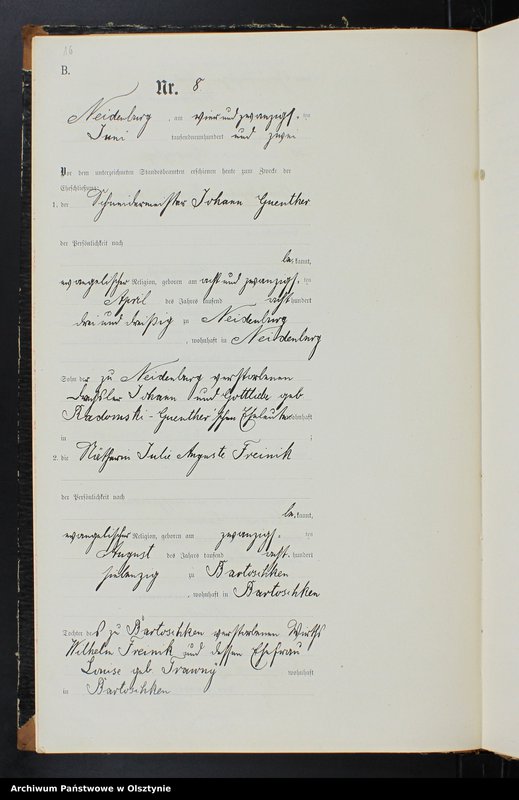 16
B.
Nr. 8
Neidenburg, am vier und zwanzigsten
Juni tausendneunhundert und zwei
Vor dem unterzeichneten Standesbeamten erschienen heute zum Zwecke der
Eheschließung:
1. der Schneidermeister Johann Guenther
der Persönlichkeit nach
bekannt,
evangelischer Religion, geboren am acht und zwanzigsten
April des Jahres tausend achthundert
drei und dreißig zu Neidenburg
, wohnhaft in Neidenburg
Sohn der zu Neidenburg verstorbenen
Drechsler Johann und Gottliebe geb
Radomski-Guenther'schen Eheleute wohnhaft
in ;
2. die Nätherin Julie Auguste Treinik
der Persönlichkeit nach
bekannt,
evangelischer Religion, geboren am zwanzigsten
August des Jahres tausend achthundert
siebenzig zu Bartoschken
, wohnhaft in Bartoschken
Tochter des zu Bartoschken verstorbenen Wirths
Wilhelm Treinik und dessen Ehefrau
Louise geb. Trawny wohnhaft
in Bartoschken
Archiwum Państwowe w Olsztynie